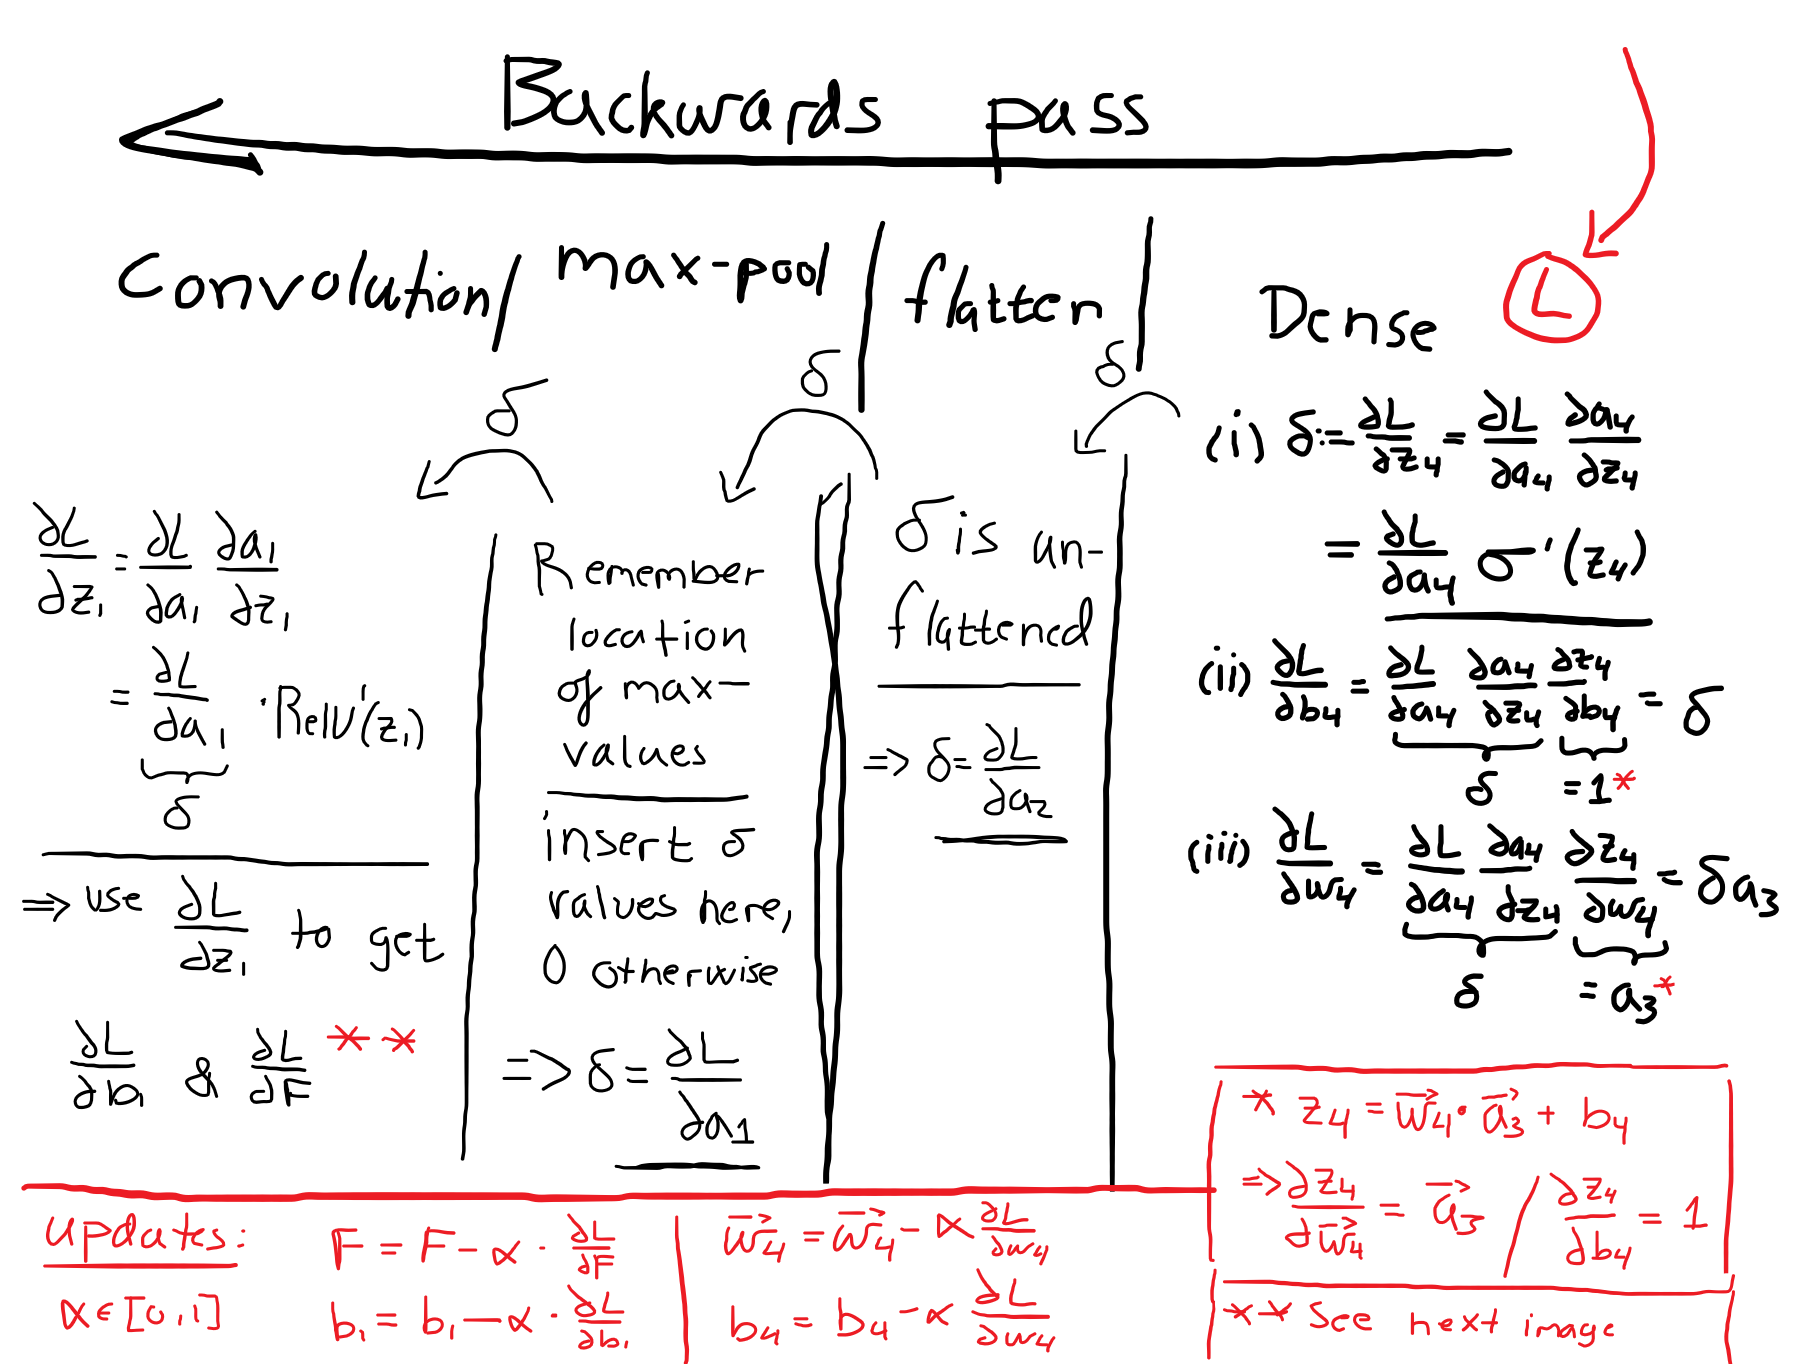 Backwards pass
Convolution / max-pool | flatten | Dense L
δ
δ
δ
∂L/∂z₁ = ∂L/∂a₁ ∂a₁/∂z₁
= ∂L/∂a₁ · Relu'(z₁)
δ
⇒ use ∂L/∂z₁ to get
∂L/∂b₁ & ∂L/∂F **
Remember
location
of max-
values
insert δ
values here,
0 otherwise
⇒ δ = ∂L/∂a₁
δ is un-
flattened
⇒ δ = ∂L/∂a₂
(i) δ := ∂L/∂z₄ = ∂L/∂a₄ ∂a₄/∂z₄
= ∂L/∂a₄ σ'(z₄)
(ii) ∂L/∂b₄ = ∂L/∂a₄ ∂a₄/∂z₄ ∂z₄/∂b₄ = δ
δ =1*
(iii) ∂L/∂w₄ = ∂L/∂a₄ ∂a₄/∂z₄ ∂z₄/∂w₄ = δa₃
δ = a₃*
* z₄ = w⃗₄ · a⃗₃ + b₄
⇒ ∂z₄/∂w⃗₄ = a⃗₃ / ∂z₄/∂b₄ = 1
** See next image
updates:
α ∈ [0,1]
F = F - α · ∂L/∂F
b₁ = b₁ - α · ∂L/∂b₁
w⃗₄ = w⃗₄ - α ∂L/∂w₄
b₄ = b₄ - α ∂L/∂w₄